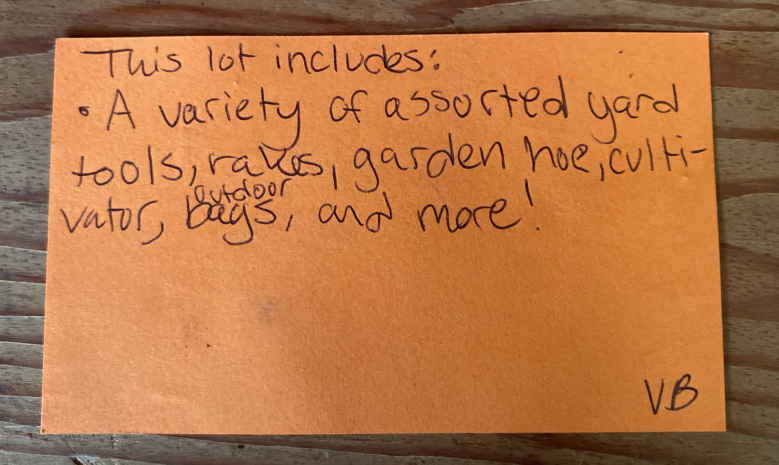 This lot includes:
• A variety of assorted yard
tools, rakes, garden hoe, culti-
vator, outdoor bags, and more!
VB